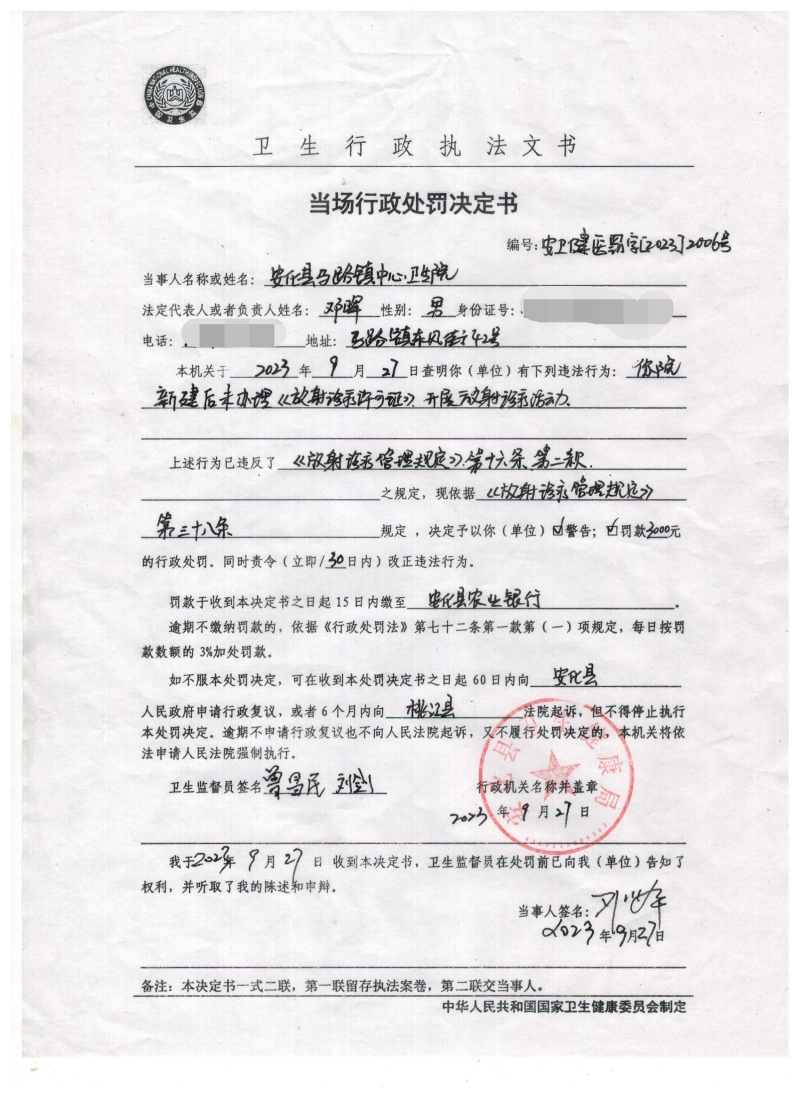 CHINA NATIONAL HEALTH INSPECTION
中国卫生监督
卫生行政执法文书
当场行政处罚决定书
编号:安卫健医罚字[2023]2006号
当事人名称或姓名:安化县马路镇中心卫生院
法定代表人或者负责人姓名:邓晖 性别:男 身份证号:
电话: 地址:马路镇东风街42号
本机关于 2023 年 9 月 27 日查明你(单位)有下列违法行为:你院
新建后未办理《放射诊疗许可证》开展放射诊疗活动.
上述行为已违反了《放射诊疗管理规定》第十六条第二款.
之规定,现依据《放射诊疗管理规定》
第三十八条 规定,决定予以你(单位)☑警告;☑罚款3000元
的行政处罚。同时责令(立即/30日内)改正违法行为。
罚款于收到本决定书之日起15日内缴至 安化县农业银行 。
逾期不缴纳罚款的,依据《行政处罚法》第七十二条第一款第(一)项规定,每日按罚
款数额的3%加处罚款。
如不服本处罚决定,可在收到本处罚决定书之日起60日内向 安化县
人民政府申请行政复议,或者6个月内向 桃江县 法院起诉,但不得停止执行
本处罚决定。逾期不申请行政复议也不向人民法院起诉,又不履行处罚决定的,本机关将依
法申请人民法院强制执行。
安化县卫生健康局
卫生监督员签名 曾昌民 刘剑 行政机关名称并盖章
2023 年 9 月 27 日
我于2023年 9 月 27 日 收到本决定书,卫生监督员在处罚前已向我(单位)告知了
权利,并听取了我的陈述和申辩。
当事人签名:
2023 年 9月27日
备注:本决定书一式二联,第一联留存执法案卷,第二联交当事人。
中华人民共和国国家卫生健康委员会制定